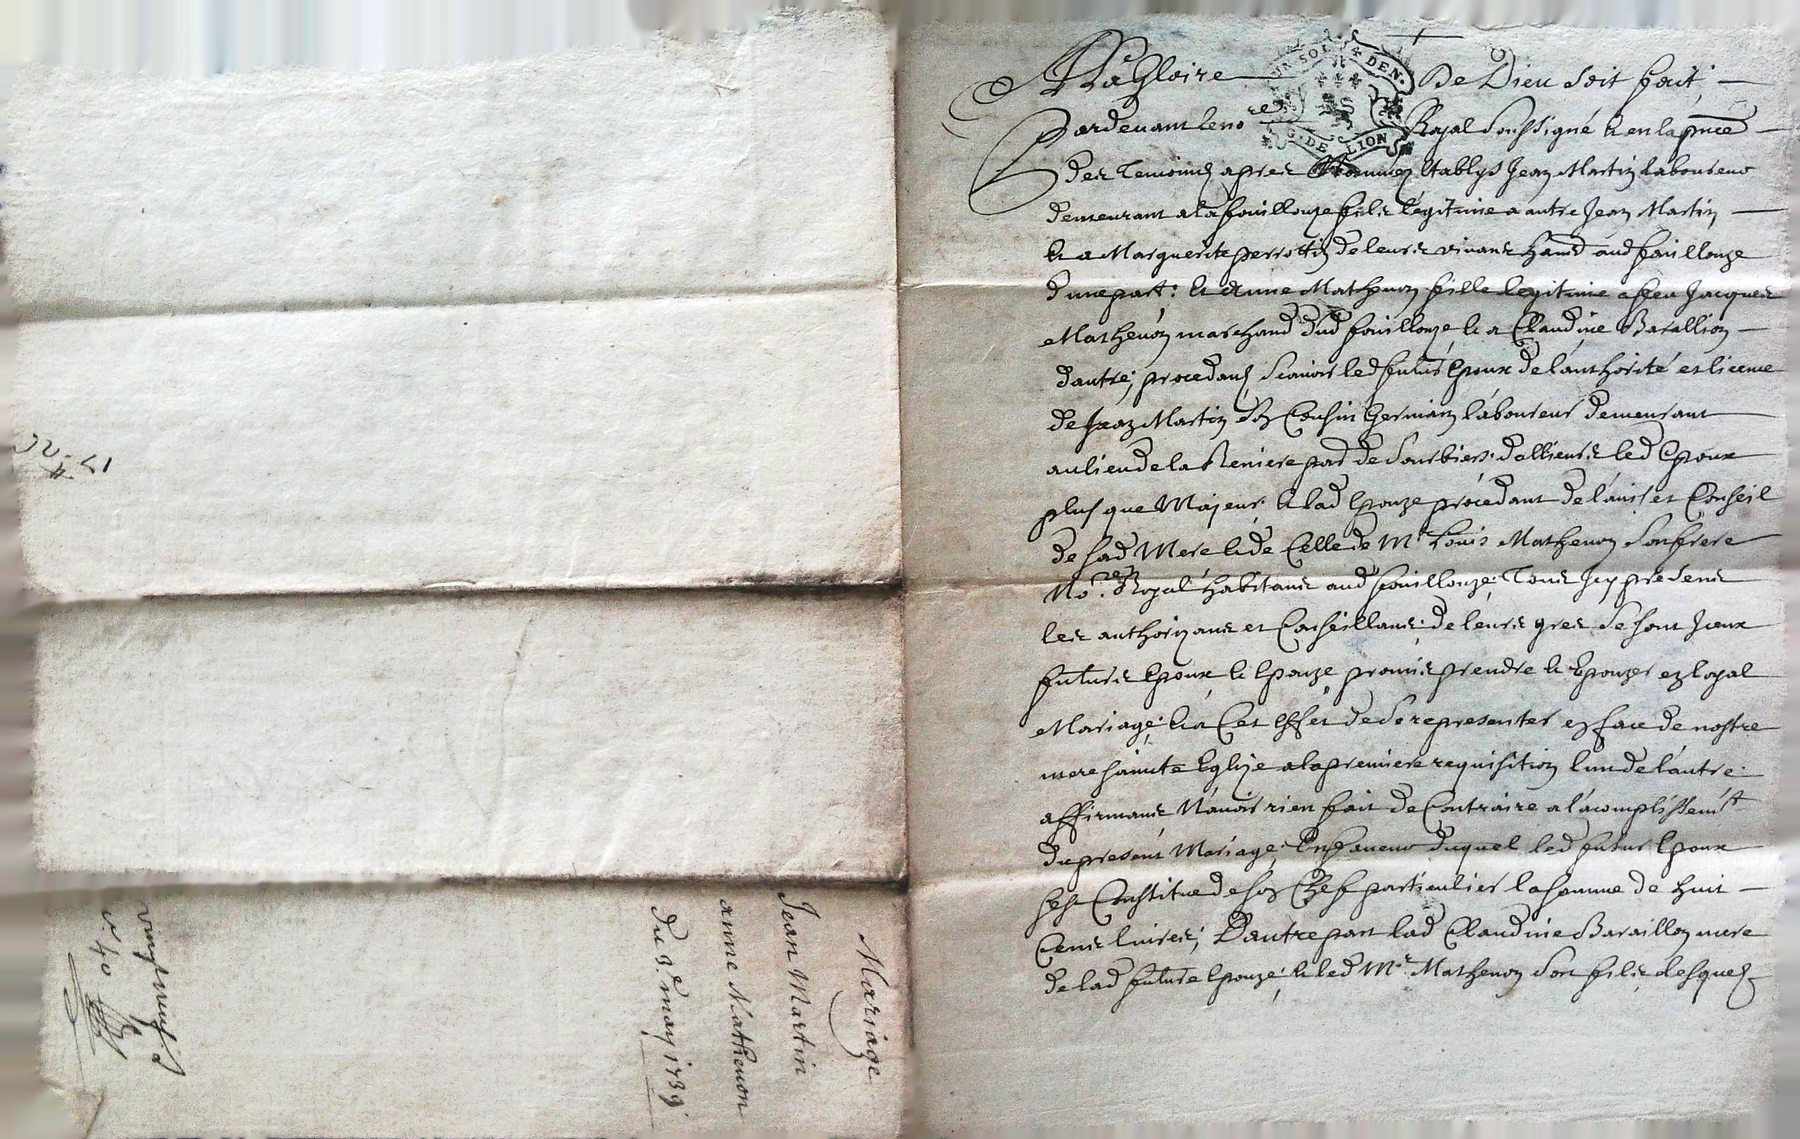 A La Gloire De Dieu Soit fait,
Pardevant le no.re Royal Soussigné & en la pnce
des Temoins apres Nommez Establys Jean Martin laboureur
demeurant a la fouillouze fils legitime a autre Jean Martin
& a Marguerite perrottin de leurs vivans habd aud fouillouze
d'une part: & Anne Mathevon fille legitime a feu Jacques
Mathevon marchand dud fouillouze & a Claudine Barallion
d'autre; procedans Scavoir led futur Epoux de l'authorité et licence
de Jean Martin Son Cousin Germain laboureur demeurant
au lieu de la pard de Sourbiers d'allieurs led Epoux
plus que Majeur & lad Epouze procedant de l'avis et Conseil
de sad Mere & de Celle de Mr Louis Mathevon Son frere
No.re Royal habitans aud fouillouze: Tous Icy presens
les authorizans et Conseillans: de leurs gres Se sont Iceux
futurs Epoux & Epouze promis prendre & Epouzer en loyal
Mariage; & a Cet Effet de Se representer en face de nostre
mere sainte Eglize a la premiere requisition l'un de l'autre:
affirmans N'avoir rien fait de Contraire a l'acomplissemt
du present Mariage; En faveur duquel led futur Epoux
sest Constitue de son Chef particulier la somme de huit
Cens livres; D'autre part lad Claudine Baraillon mere
de lad future Epouze; & led Mr Mathevon Son fils desquels
UN SOL 4 DEN.
G. DE LION
Mariage
Jean Martin
anne Mathevon
Du 3.e may 1739
vingt neuf
n° 40